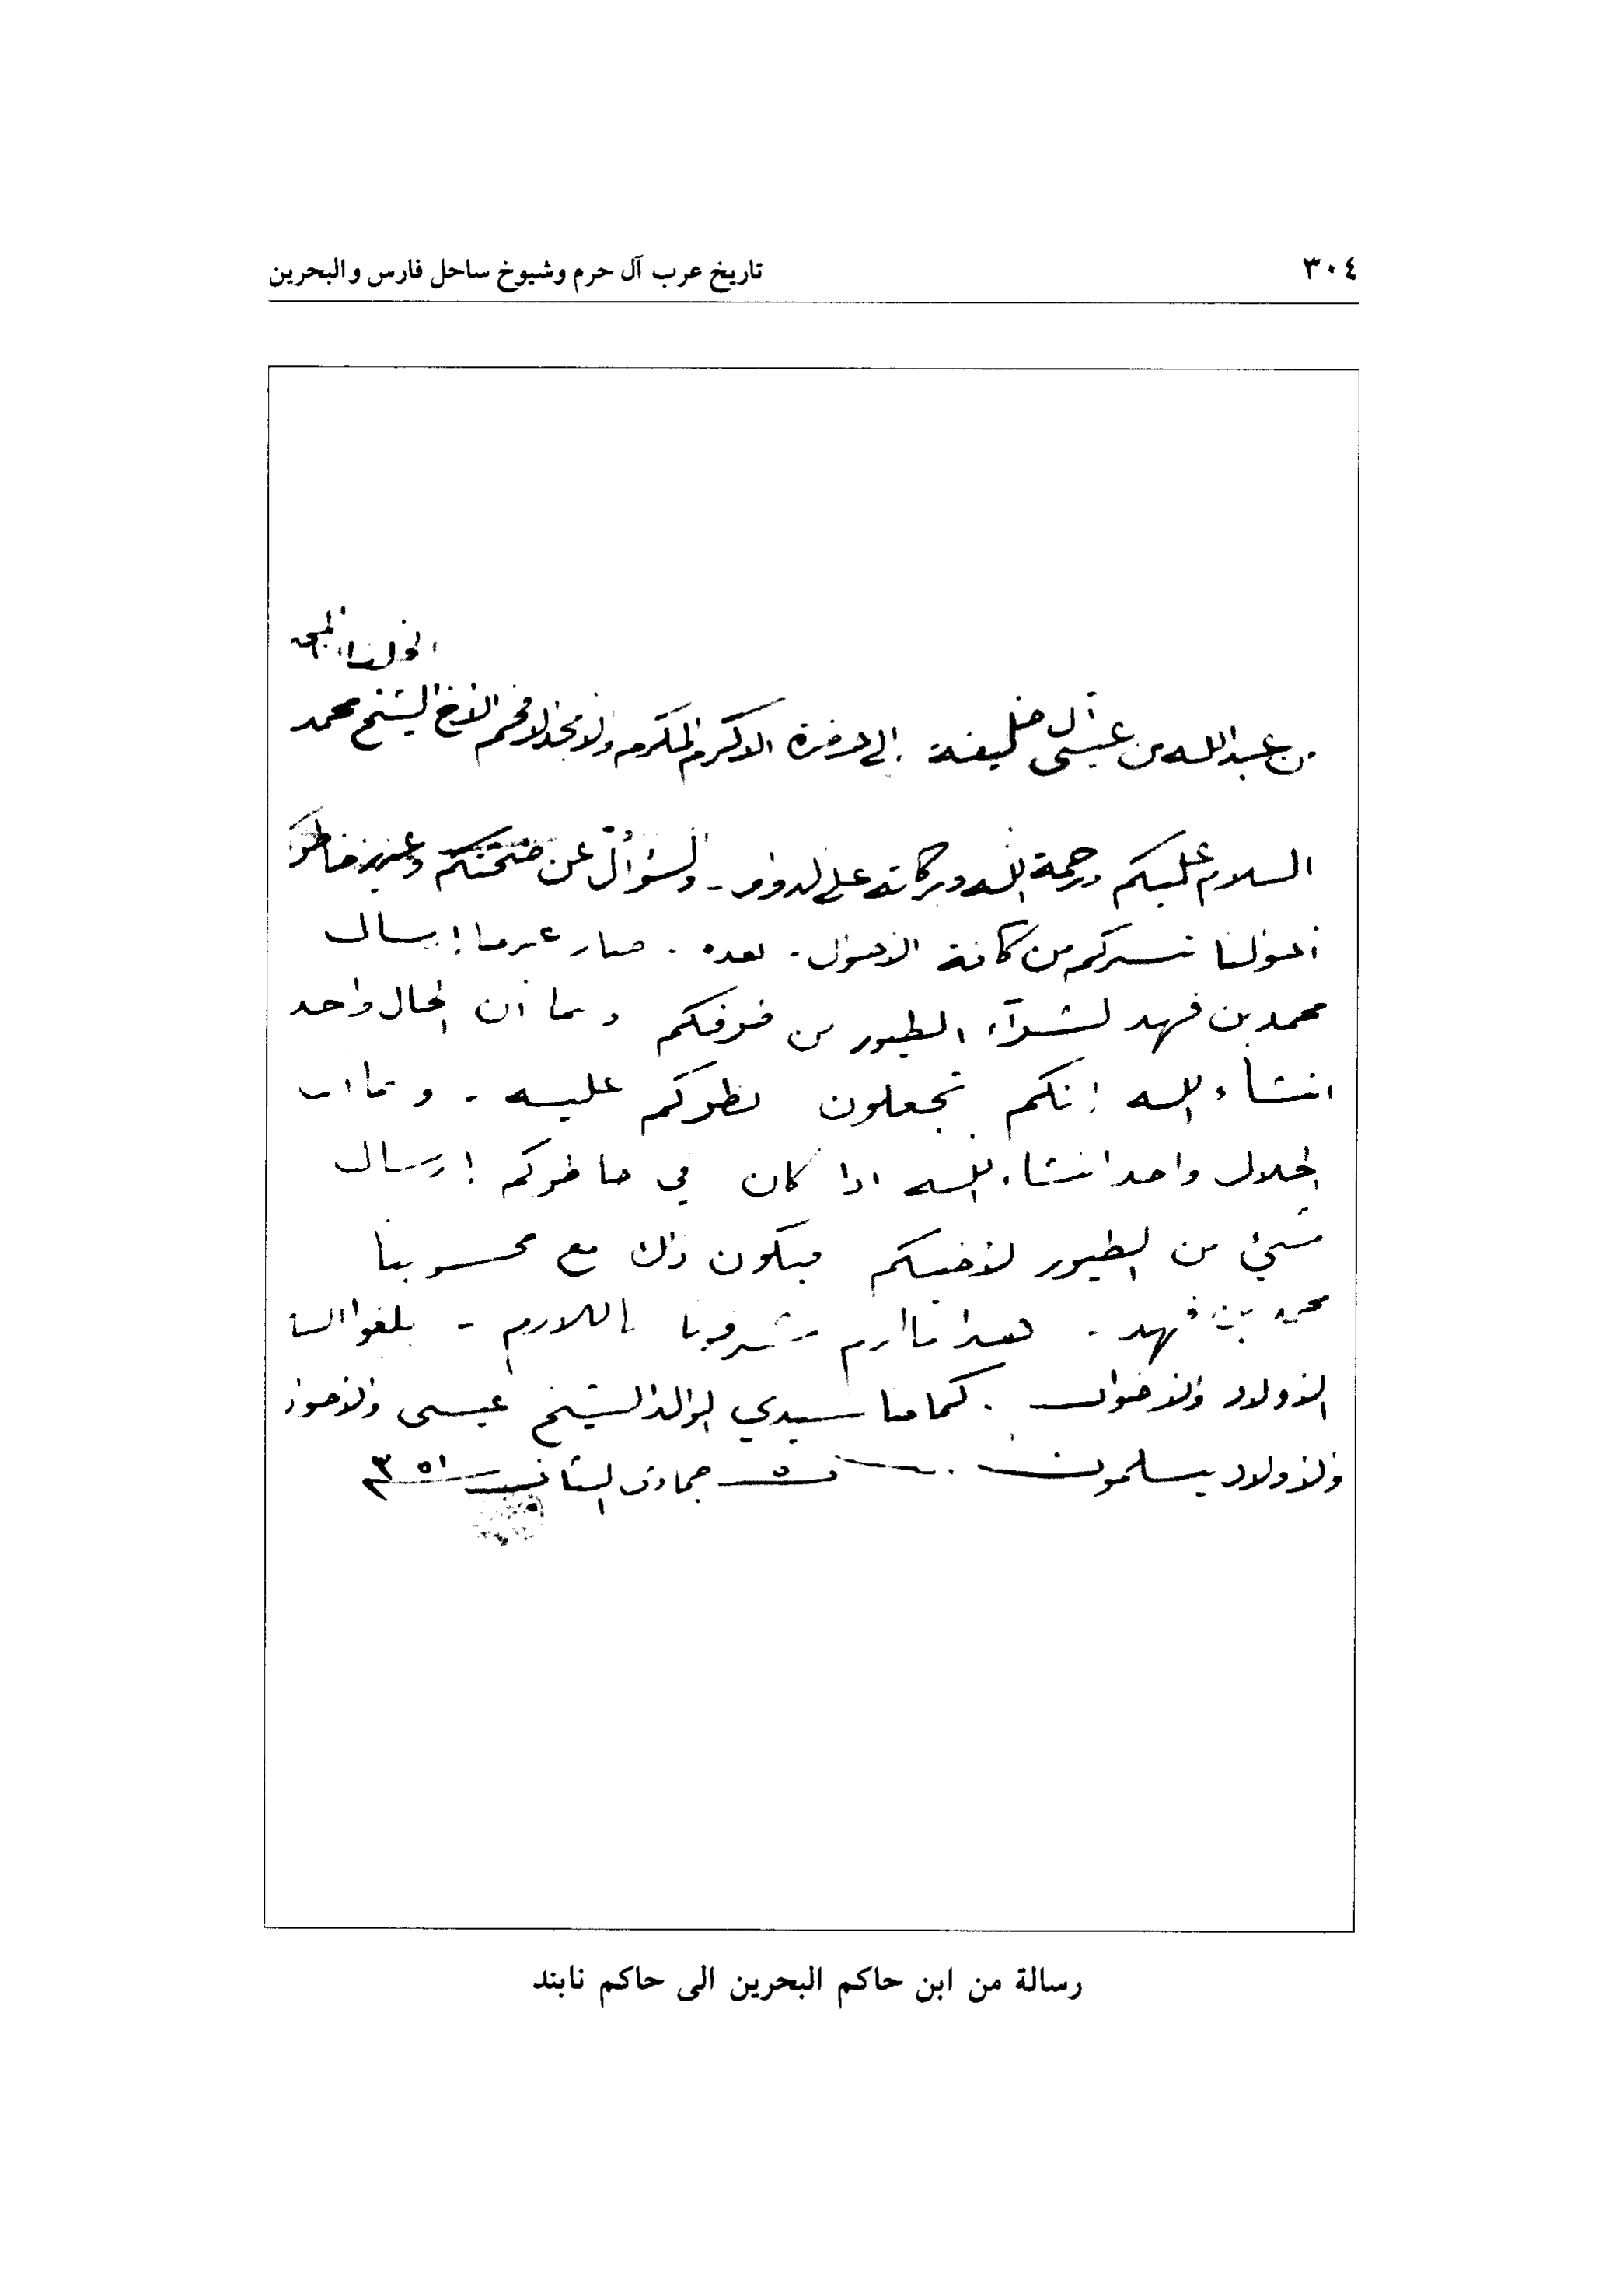 ٣٠٤
تاريخ عرب آل حرم وشيوخ ساحل فارس والبحرين
من عبدالله بن عيسى آل خليفة إلى حضرة الاكرم المكرم والامجد الافخم الأخ الشيخ محمد
السلام عليكم ورحمة الله وبركاته على الدوام - والسؤال عن صحتكم وعزيز خاطركم
أحوالنا تسركم من كافة الأحوال - بعده . صار عزمنا إرسال
محمد بن فهد لشرآء الطيور من طرفكم وبما أن الحال واحد
انشاء الله إنكم تجعلون نظركم عليه - وبما ان
الحلال واحد انشاء الله اذا كان في خاطركم إرسال
شيئ من الطيور لأخيكم فيكون ذلك مع محسوبنا
محمد بن فهد - هذا مالزم شرفونا باللازم - بلغوا السلام
الأولاد والأخوان . كما منا سيدي الوالد الشيخ عيسى والأخوان
والأولاد يسلمون . جمادى الثاني ٣٥١
رسالة من ابن حاكم البحرين الى حاكم نابند